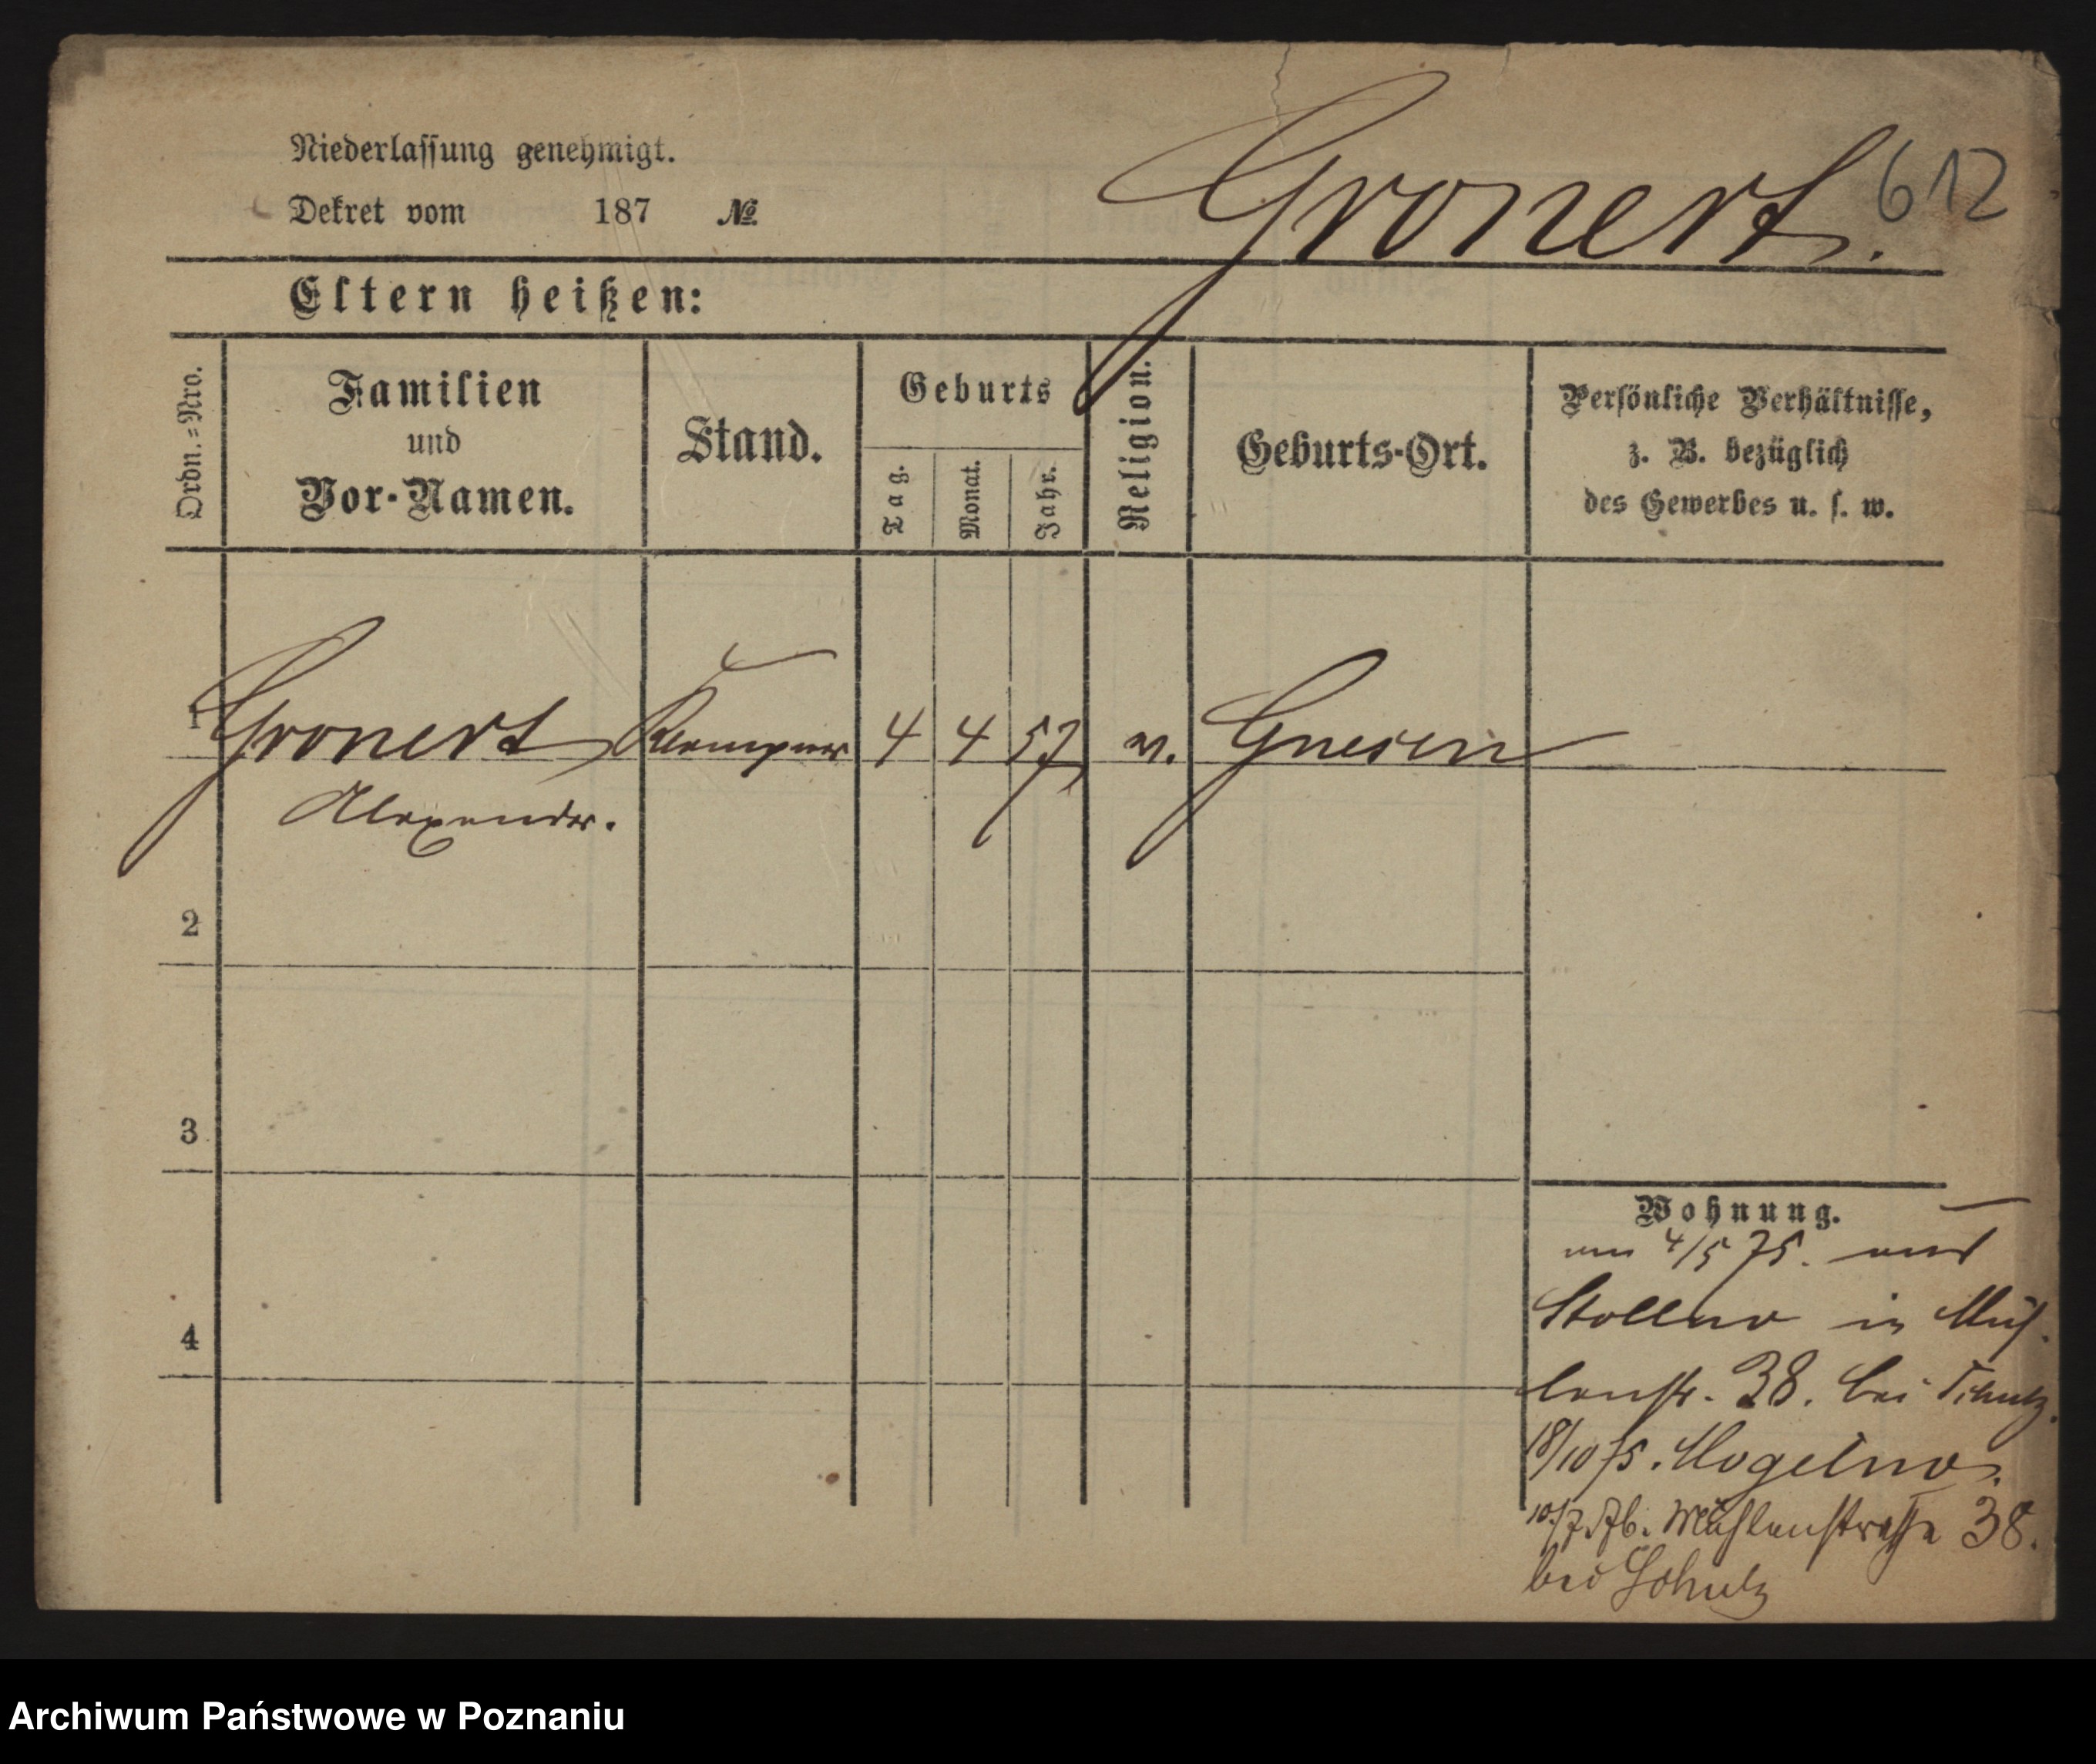 Niederlassung genehmigt.
Dekret vom 187 №
Gronert.
612
Eltern heißen:
Ordn.=Nro.
Familien
und
Vor-Namen.
Stand.
Geburts
Tag.
Monat.
Jahr.
Religion.
Geburts-Ort.
Persönliche Verhältnisse,
z. B. bezüglich
des Gewerbes u. s. w.
1 Gronert Klempner 4 4 57 Gnesen
Alexander.
2
3
4
Wohnung.
4/5 75.
in Müh-
lenstr. 38. bei Schulz.
18/10 75. Mogelno.
10/7.76. Mühlenstraße 38.
bei Schulz
Archiwum Państwowe w Poznaniu